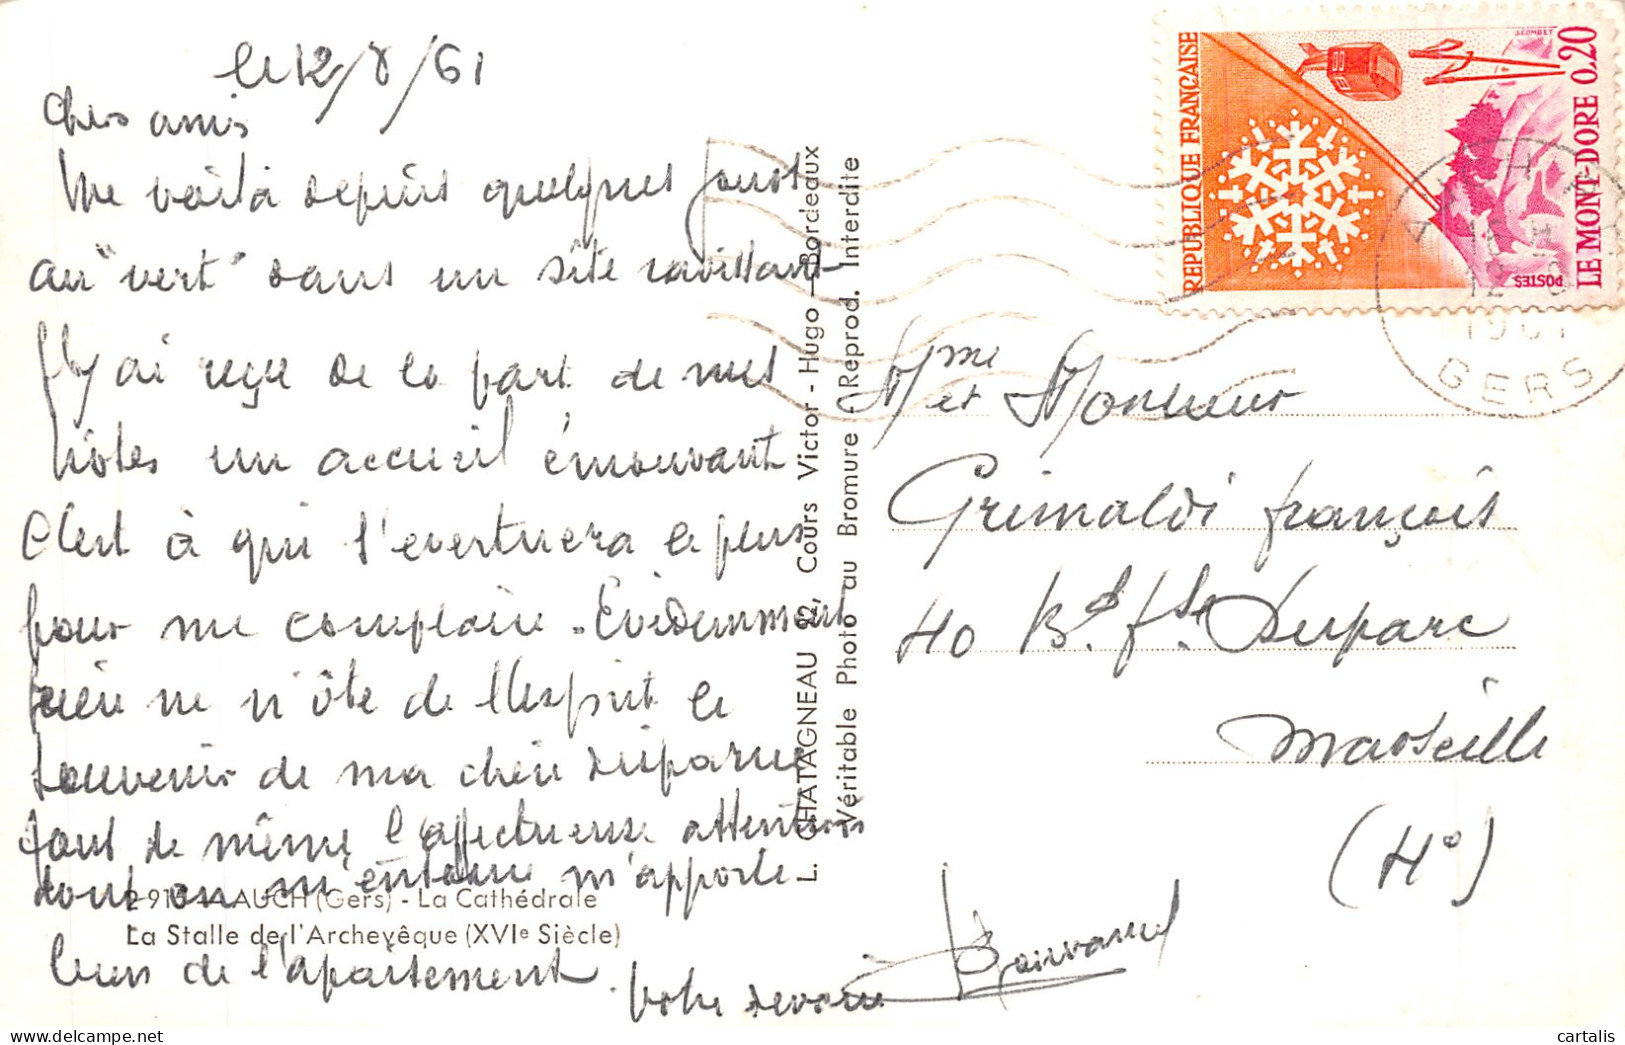 le 12/8/61
Chers amis
Me voilà depuis quelques jours
au "vert" dans un site ravissant
J'y ai reçu de la part de mes
hôtes un accueil émouvant
C'est à qui s'evertuera le plus
pour me complaire. Evidemment
rien ne m'ôte de l'esprit le
souvenir de ma chère disparue
tout de même l'affectueuse attention
dont on m'entoure m'apporte
de l'apaisement.
Votre
REPUBLIQUE FRANÇAISE
J.COMBET
POSTES
LE MONT-DORE 0.20
AUCH
12
1961
GERS
L. CHATAGNEAU 92, Cours Victor-Hugo - Bordeaux
Véritable Photo au Bromure (Reprod. Interdite
Mme et Monsieur
Grimaldi françois
40 Bd fse Duparc
Marseille
(4e)
AUCH (Gers) - La Cathédrale
La Stalle de l'Archevêque (XVIe Siècle)
delcampe.net
cartalis